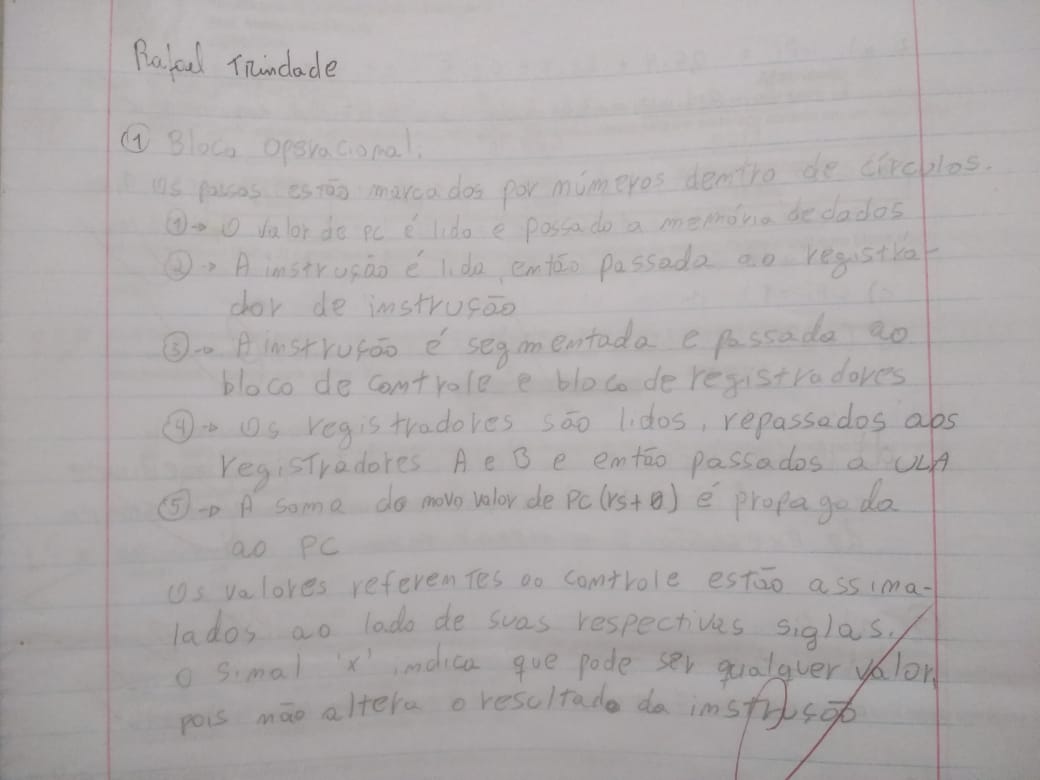 Rafael Trindade
① Bloco Operacional.
Os passos estão marcados por números dentro de círculos.
① → O valor de PC é lido e passado a memória de dados
② → A instrução é lida, então passada ao registra-
dor de instrução
③ → A instrução é segmentada e passada ao
bloco de controle e bloco de registradores
④ → Os registradores são lidos, repassados aos
registradores A e B e então passados a ULA
⑤ → A soma do novo valor de PC (rs + 0) é propagada
ao PC
Os valores referentes ao controle estão assina-
lados ao lado de suas respectivas siglas.
O sinal 'x' indica que pode ser qualquer valor,
pois não altera o resultado da instrução